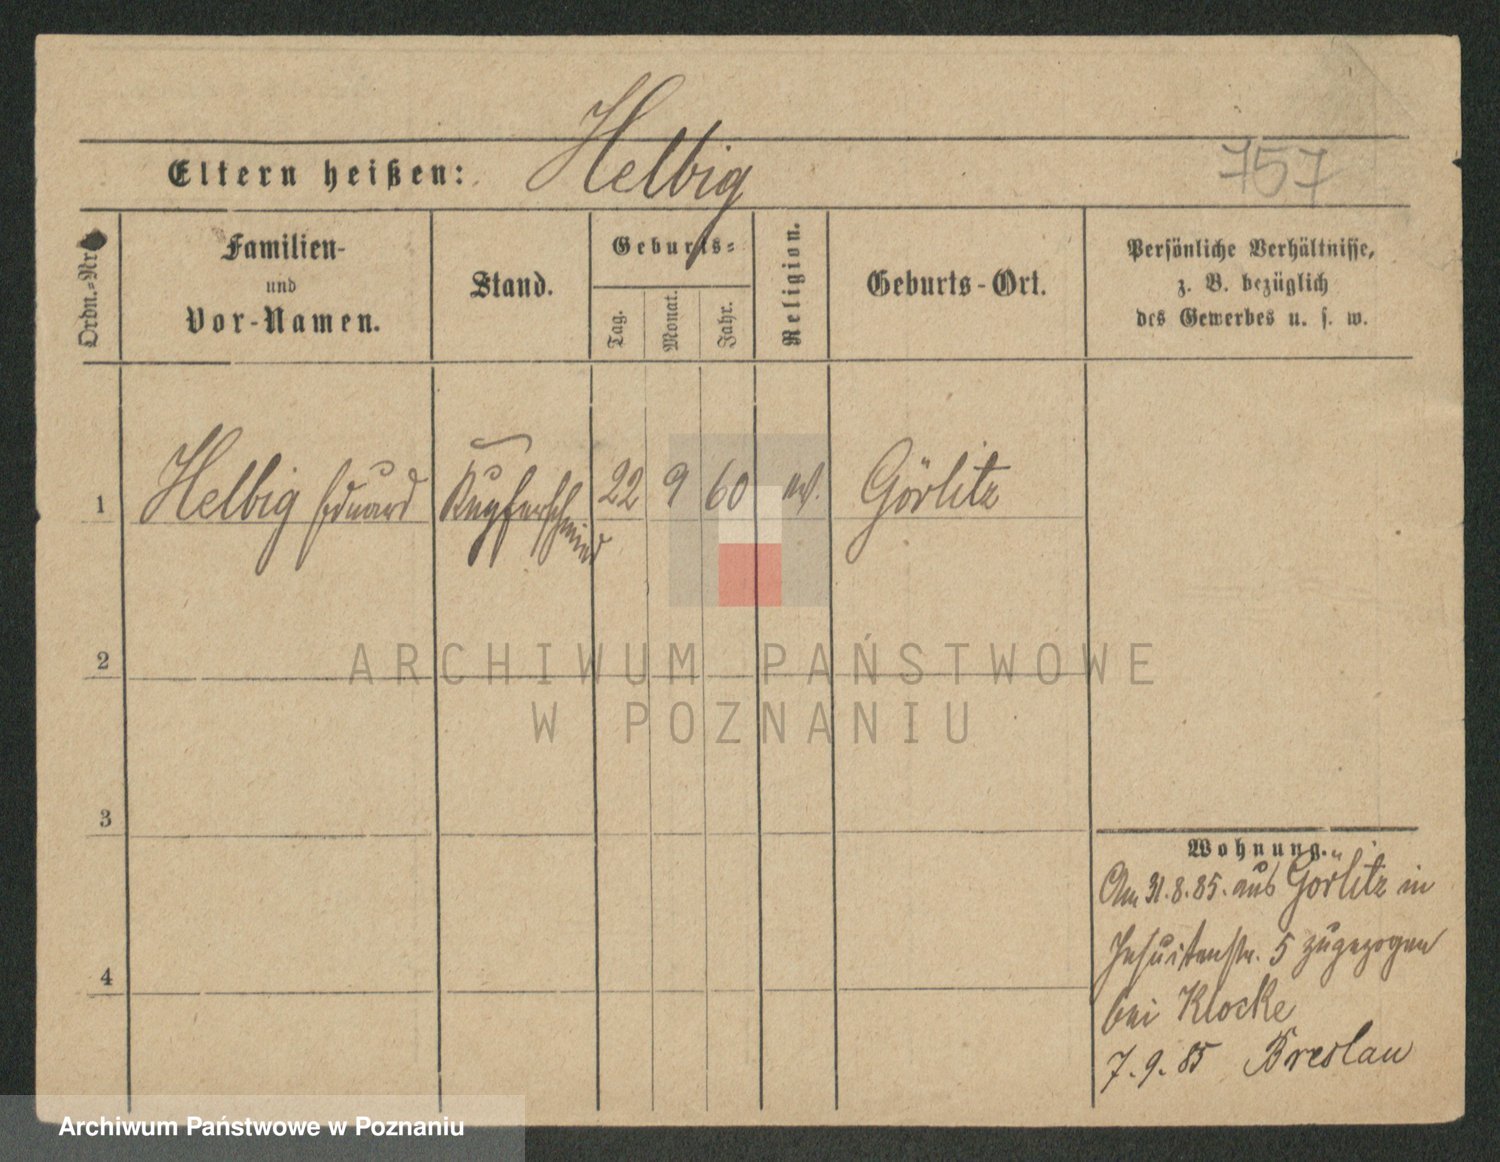 Eltern heißen: Helbig
757
Ordn.-Nr.
Familien-
und
Vor-Namen.
Stand.
Geburts-
Tag.
Monat.
Jahr.
Religion.
Geburts-Ort.
Persönliche Verhältnisse,
z. B. bezüglich
des Gewerbes u. s. w.
1 Helbig Eduard Kupferschmied 22 9 60 ev. Görlitz
2
ARCHIWUM PAŃSTWOWE
W POZNANIU
3
4
Wohnung.
Am 31.8.85. aus Görlitz in
Jesuitenstr. 5 zugezogen
bei Klocke
7.9.85 Breslau
Archiwum Państwowe w Poznaniu